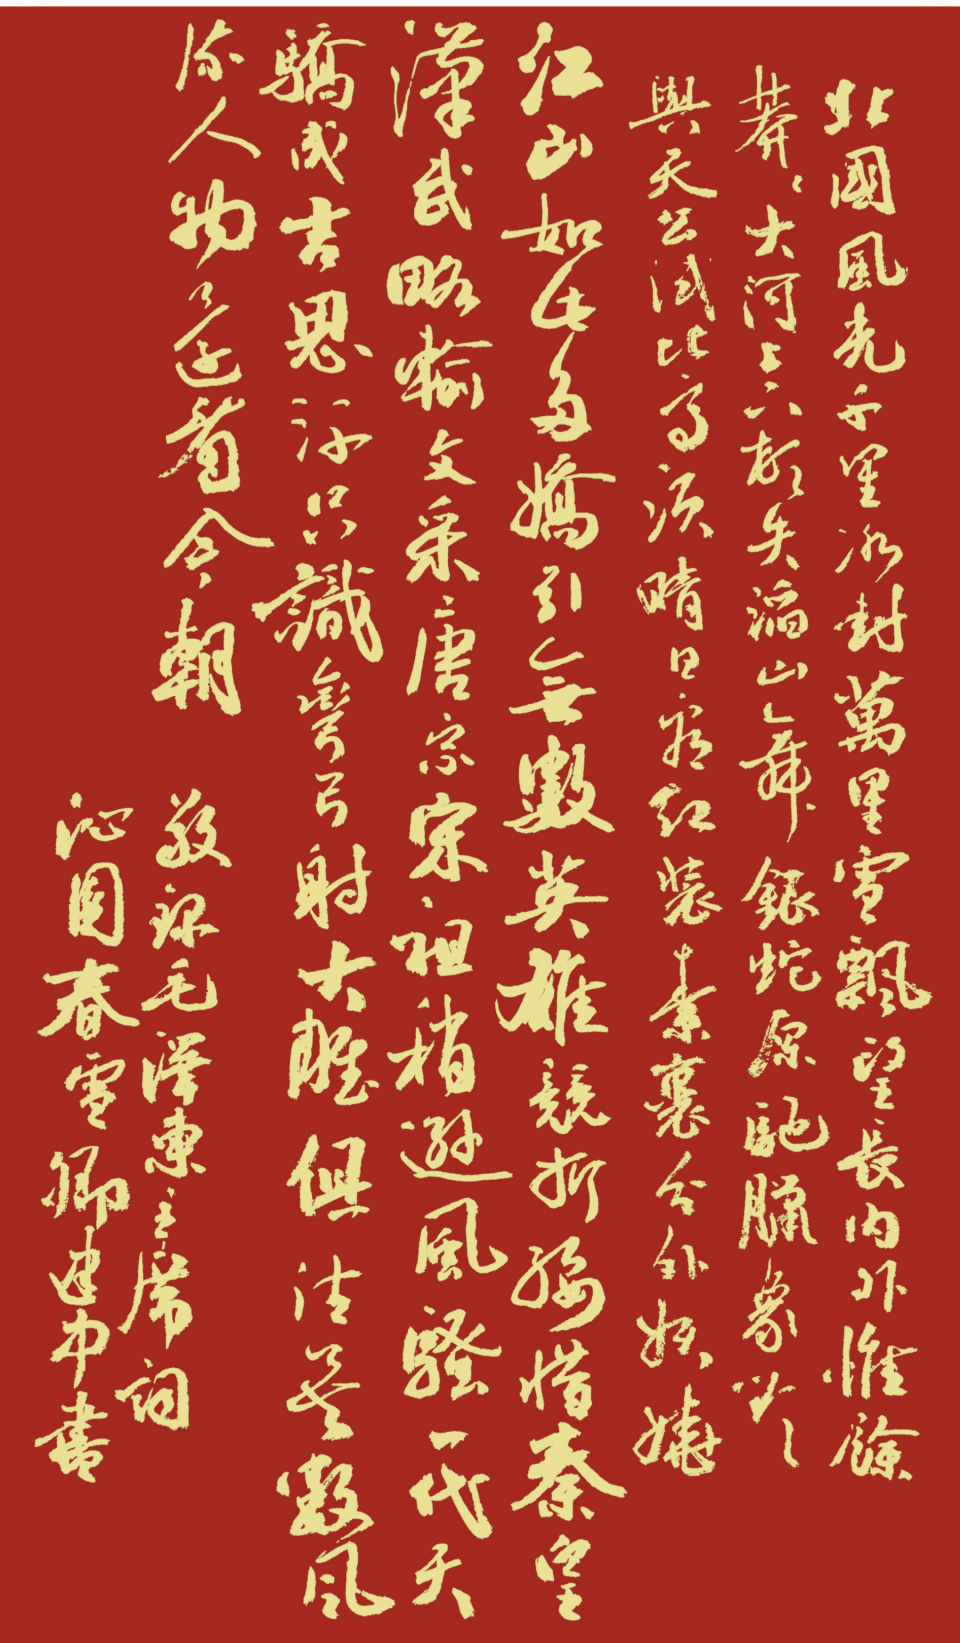 北國風光千里冰封萬里雪飄望長城內外惟餘
莽々大河上下頓失滔滔山舞銀蛇原馳臘象欲
與天公試比高須晴日看紅裝素裹分外妖嬈
江山如此多嬌引無數英雄競折腰惜秦皇
漢武略輸文采唐宗宋祖稍遜風騷一代天
驕成吉思汗只識彎弓射大雕俱往矣數風
流人物還看今朝
敬錄毛澤東主席詞
沁園春雪卿建中書